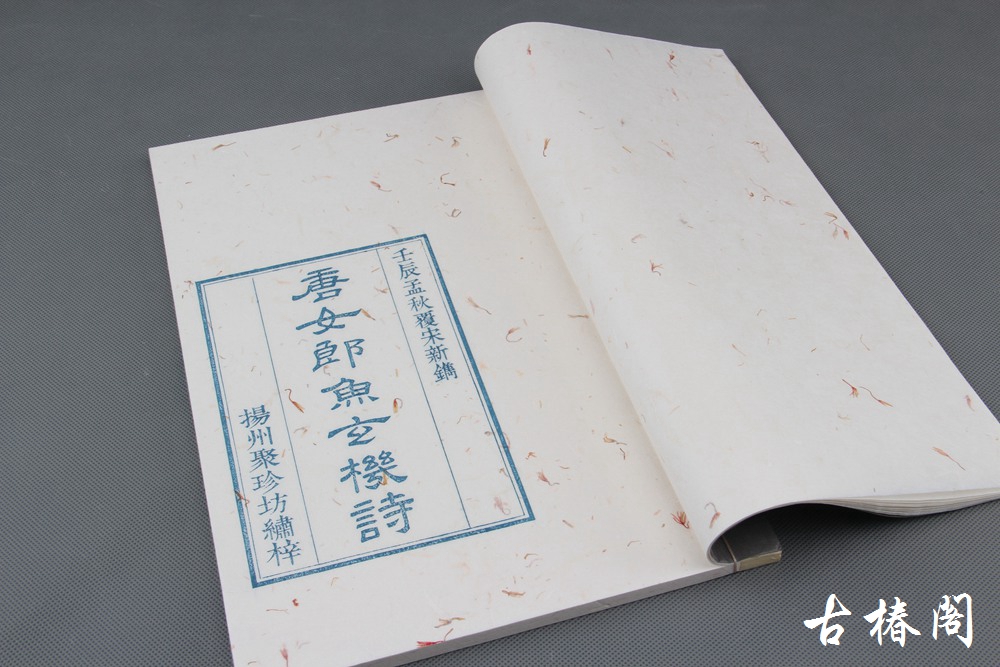 壬辰孟秋覆宋新鐫
唐女郎魚玄機詩
揚州聚珍坊繡梓
古椿閣